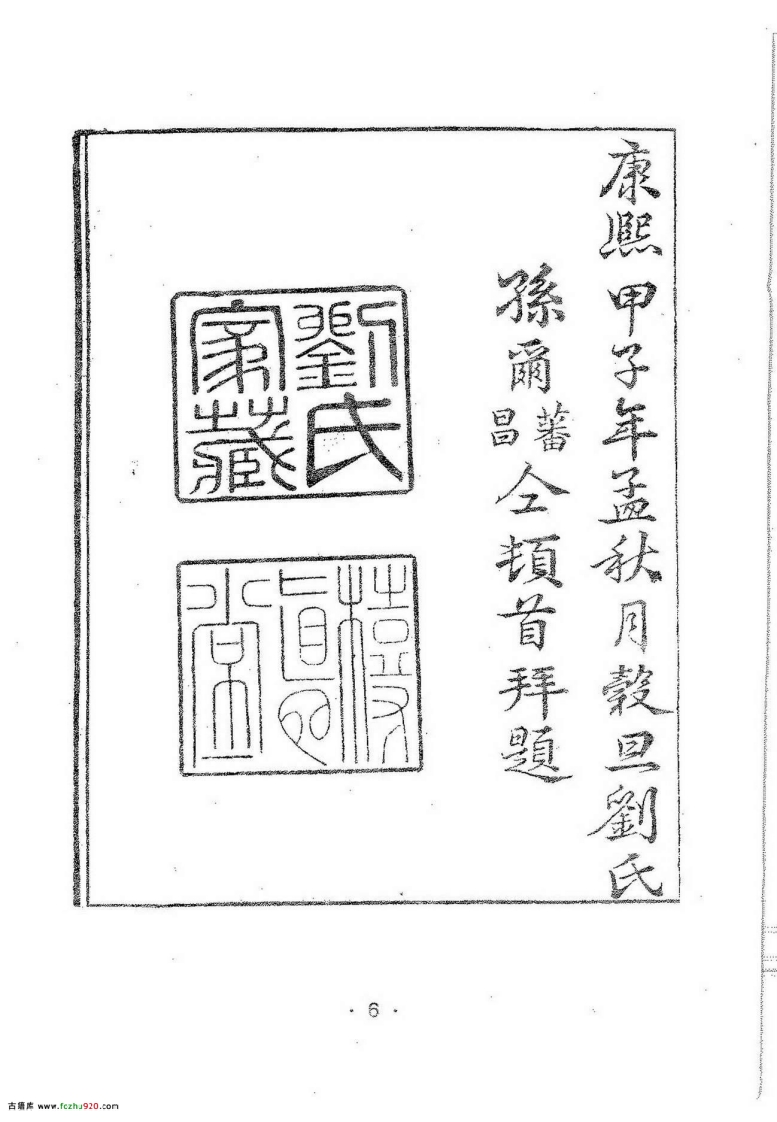 康熙甲子年孟秋月穀旦劉氏
孫爾蕃昌仝頓首拜題
劉氏家藏
堂
· 6 ·
古籍库 www.fozhu920.com